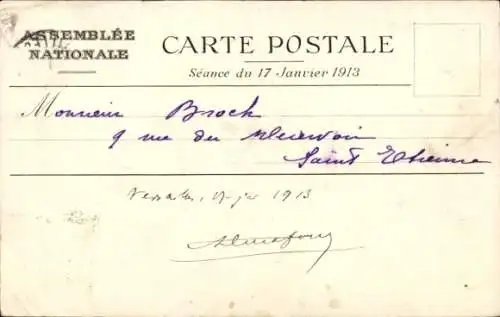 ASSEMBLÉE
NATIONALE
CARTE POSTALE
Séance du 17 Janvier 1913
Monsieur Broch
9 rue du
Saint Etienne
1913